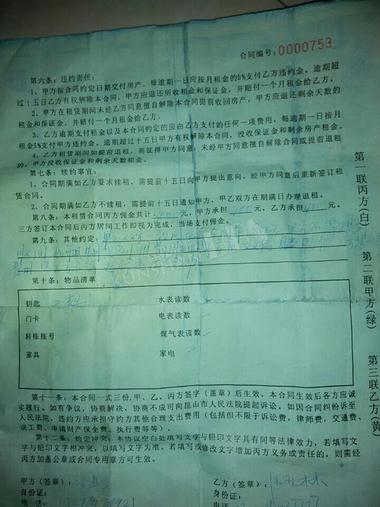 合同编号:0000753
第六条:违约责任:
1、甲方按合同约定日期交付房产,每逾期一日应按月租金的5%支付乙方违约金。逾期超
过十五日乙方有权解除本合同,甲方应退还所收租金和保证金,并赔付一个月租金给乙方。
2、甲方在租赁期间未经乙方同意擅自解除本合同提前收回房产,甲方应退还剩余天数的
租金和保证金,并赔付一个月租金给乙方。
3、乙方逾期支付租金以及本合同约定的应由乙方支付的任何一项费用,每逾期一日按月
租金5%支付甲方违约金。逾期超过十五日甲方有权解除本合同,没收保证金和剩余房产租金。
4、乙方租赁期间如提前退租,需征得甲方同意,未经甲方同意擅自解除合同或提前退租
的,甲方没收保证金和剩余天数租金。
第七条:续约事宜:
1、合同期满如乙方要求续租,需提前十五日向甲方提出意向,经甲方同意后重新签订租
赁合同。
2、合同期满如乙方不续租,需提前十五日通知甲方,甲乙双方在期满日办理退租。
第八条:本租赁合同丙方佣金共计 元,甲方承担 元,乙方承担 元。
三方签订本合同后丙方居间工作即视为完成,当场支付佣金。
第九条:其他约定:
第十条:物品清单
钥匙 水表读数
门卡 电表读数
转账账号 煤气表读数
家具 家电
第十一条:本合同一式三份,甲、乙、丙方签字(盖章)后生效。本合同生效后各方应诚
实履行。如有争议,协商解决。协商不成可向昆山市人民法院提起诉讼。如因合同纠纷诉至
人民法院,违约方应承担守约方其他合理支出费用(包括但不限于诉讼费,律师费,交通费,
误工费,申请财产保全费,执行费等等)。
第十二条:约定冲突:本协议空白处填写文字与铅印文字具有同等法律效力,若填写文
字与铅印文字相冲突,以填写文字为准。若填写或修改文字增加丙方义务或责任的,则需经
丙方加盖公章或合同专用章方可生效。
甲方(签章): 乙方(签章):
身份证: 身份证:
第一联丙方(白) 第二联甲方(绿) 第三联乙方(黄)